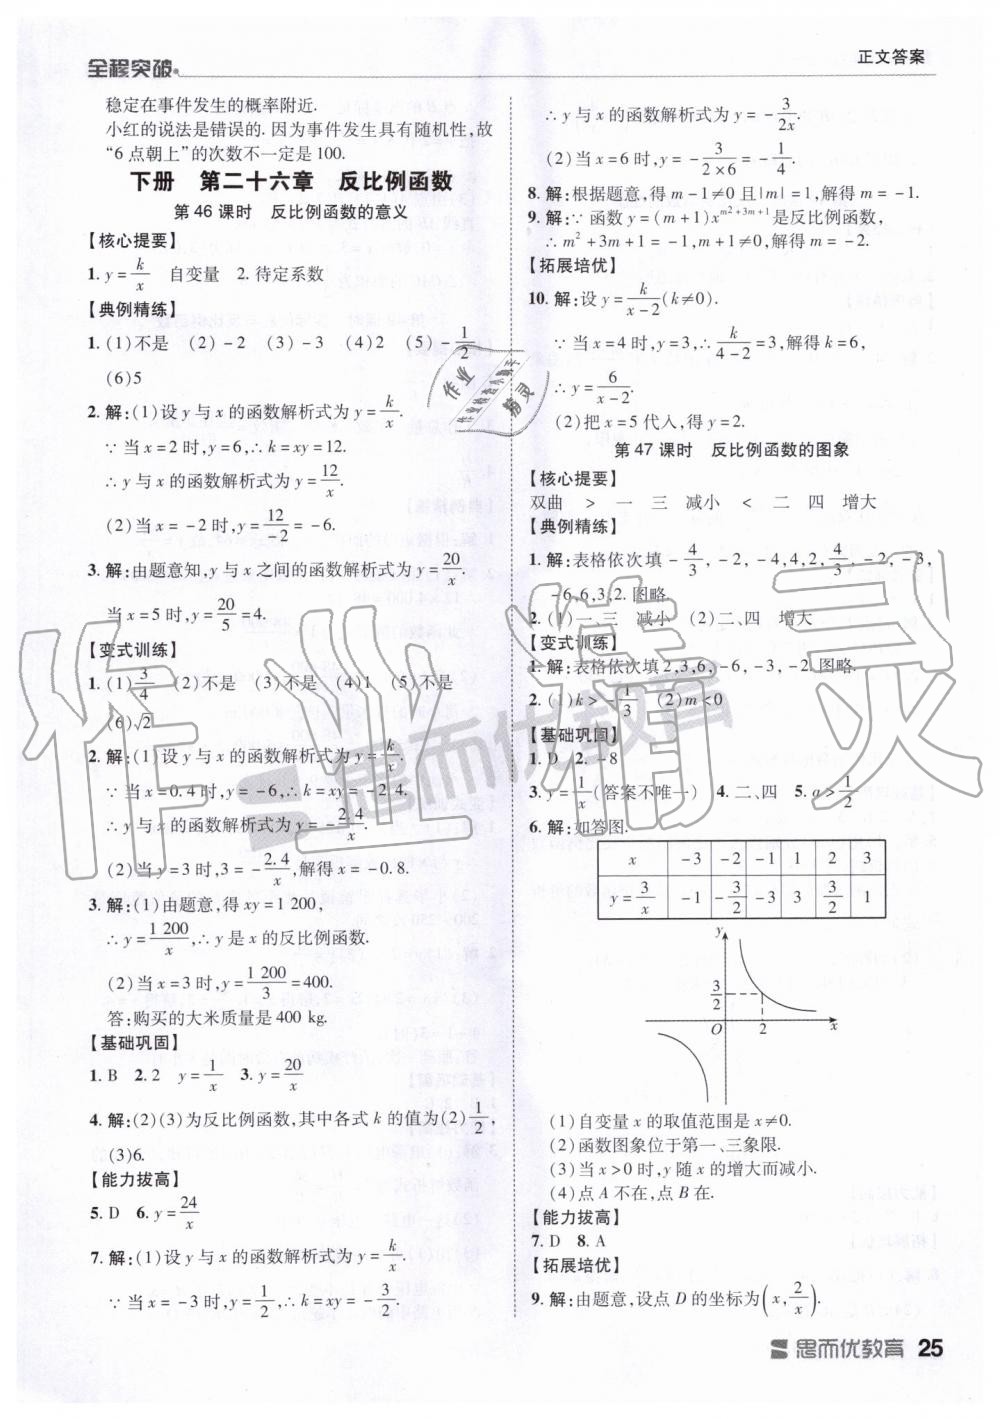 全程突破
正文答案
稳定在事件发生的概率附近.
小红的说法是错误的. 因为事件发生具有随机性,故
“6 点朝上”的次数不一定是 100.
下册 第二十六章 反比例函数
第 46 课时 反比例函数的意义
【核心提要】
1. y = k/x 自变量 2. 待定系数
【典例精练】
1. (1)不是 (2) -2 (3) -3 (4)2 (5) -1/2
(6)5
2. 解:(1)设 y 与 x 的函数解析式为 y = k/x.
∵ 当 x = 2 时,y = 6,∴ k = xy = 12.
∴ y 与 x 的函数解析式为 y = 12/x.
(2)当 x = -2 时,y = 12/-2 = -6.
3. 解:由题意知,y 与 x 之间的函数解析式为 y = 20/x.
当 x = 5 时,y = 20/5 = 4.
【变式训练】
1. (1) 3/4 (2)不是 (3)不是 (4)1 (5)不是
(6)√2
2. 解:(1)设 y 与 x 的函数解析式为 y = k/x.
∵ 当 x = 0.4 时,y = -6,∴ k = xy = -2.4.
∴ y 与 x 的函数解析式为 y = -2.4/x.
(2)当 y = 3 时,3 = -2.4/x,解得 x = -0.8.
3. 解:(1)由题意,得 xy = 1 200,
∴ y = 1 200/x,∴ y 是 x 的反比例函数.
(2)当 x = 3 时,y = 1 200/3 = 400.
答:购买的大米质量是 400 kg.
【基础巩固】
1. B 2. 2 y = 1/x 3. y = 20/x
4. 解:(2)(3)为反比例函数,其中各式 k 的值为(2) 1/2,
(3)6.
【能力拔高】
5. D 6. y = 24/x
7. 解:(1)设 y 与 x 的函数解析式为 y = k/x.
∵ 当 x = -3 时,y = 1/2,∴ k = xy = -3/2
∴ y 与 x 的函数解析式为 y = -3/2x.
(2)当 x = 6 时,y = -3/2×6 = -1/4.
8. 解:根据题意,得 m - 1 ≠ 0 且 |m| = 1,解得 m = -1.
9. 解:∵ 函数 y = (m + 1)x^(m²+3m+1) 是反比例函数,
∴ m² + 3m + 1 = -1,m + 1 ≠ 0,解得 m = -2.
【拓展培优】
10. 解:设 y = k/x-2 (k ≠ 0).
∵ 当 x = 4 时,y = 3,∴ k/4-2 = 3,解得 k = 6,
∴ y = 6/x-2.
(2)把 x = 5 代人,得 y = 2.
第 47 课时 反比例函数的图象
【核心提要】
双曲 > 一 三 减小 < 二 四 增大
【典例精练】
1. 解:表格依次填 -4/3, -2, -4,4,2, 4/3, -2, -3,
-6,6,3,2. 图略.
2. (1)一、三 减小 (2)二、四 增大
【变式训练】
1. 解:表格依次填 2,3,6, -6, -3, -2. 图略.
2. (1)k > -1/3 (2)m < 0
【基础巩固】
1. D 2. -8
3. y = -1/x (答案不唯一) 4. 二、四 5. a > 1/2
6. 解:如答图.
x -3 -2 -1 1 2 3
y = 3/x -1 -3/2 -3 3 3/2 1
y
3/2
O 2 x
(1)自变量 x 的取值范围是 x ≠ 0.
(2)函数图象位于第一、三象限.
(3)当 x > 0 时,y 随 x 的增大而减小.
(4)点 A 不在,点 B 在.
【能力拔高】
7. D 8. A
【拓展培优】
9. 解:由题意,设点 D 的坐标为 (x, 2/x).
思而优教育 25
作业精灵
思而优教育
作业
精灵